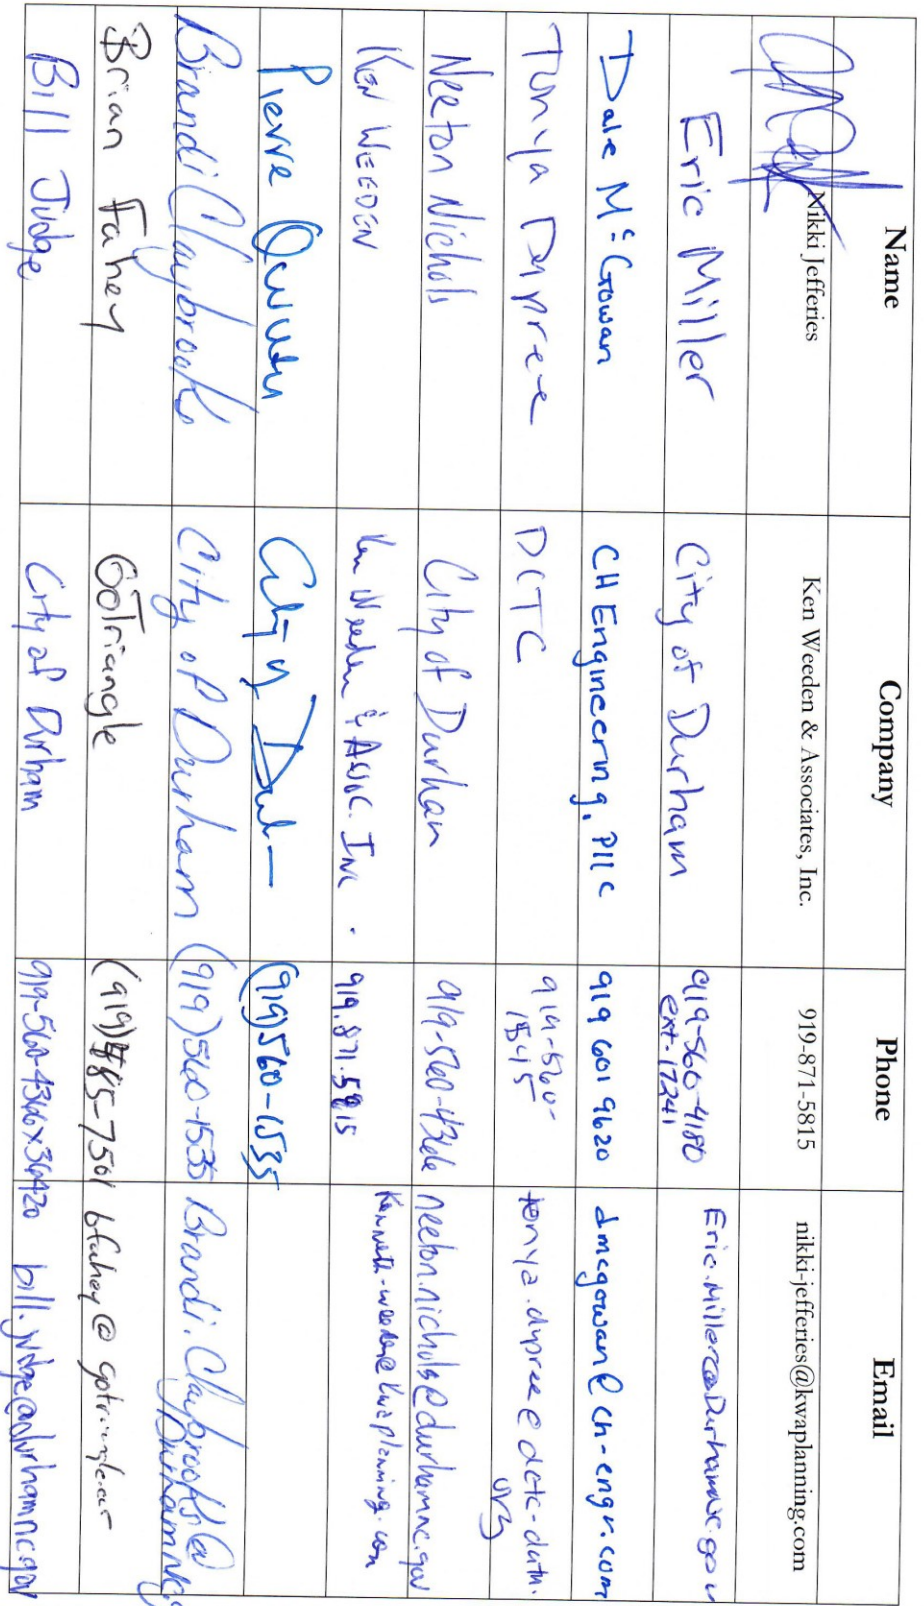 Name Company Phone Email
Nikki Jefferies Ken Weeden & Associates, Inc. 919-871-5815 nikki-jefferies@kwaplanning.com
Eric Miller City of Durham 919-560-4180 Eric.Miller@Durhamnc.gov
ext-17241
Dale McGowan CH Engineering, PLLC 919 601 9620 dmcgowan@ch-engr.com
Tonya Dupree DCTC 919-560- tonya.dupree@dctc-durh.
1545 org
Neeton Nichols City of Durham 919-560-4366 neeton.nichols@durhamnc.gov
KEN WEEDEN Ken Weeden & Assoc. Inc. 919.871.5815 Kenneth-weeden@kwaplanning.com
Pierre City of (919)560-1535
Brandi Claybrooks City of Durham (919)560-1535 Brandi.Claybrooks@
Durhamnc
Brian Fahey GoTriangle (919)485-7501 bfahey@gotriangle.org
Bill Judge City of Durham 919-560-4366x36420 bill.judge@durhamnc.gov